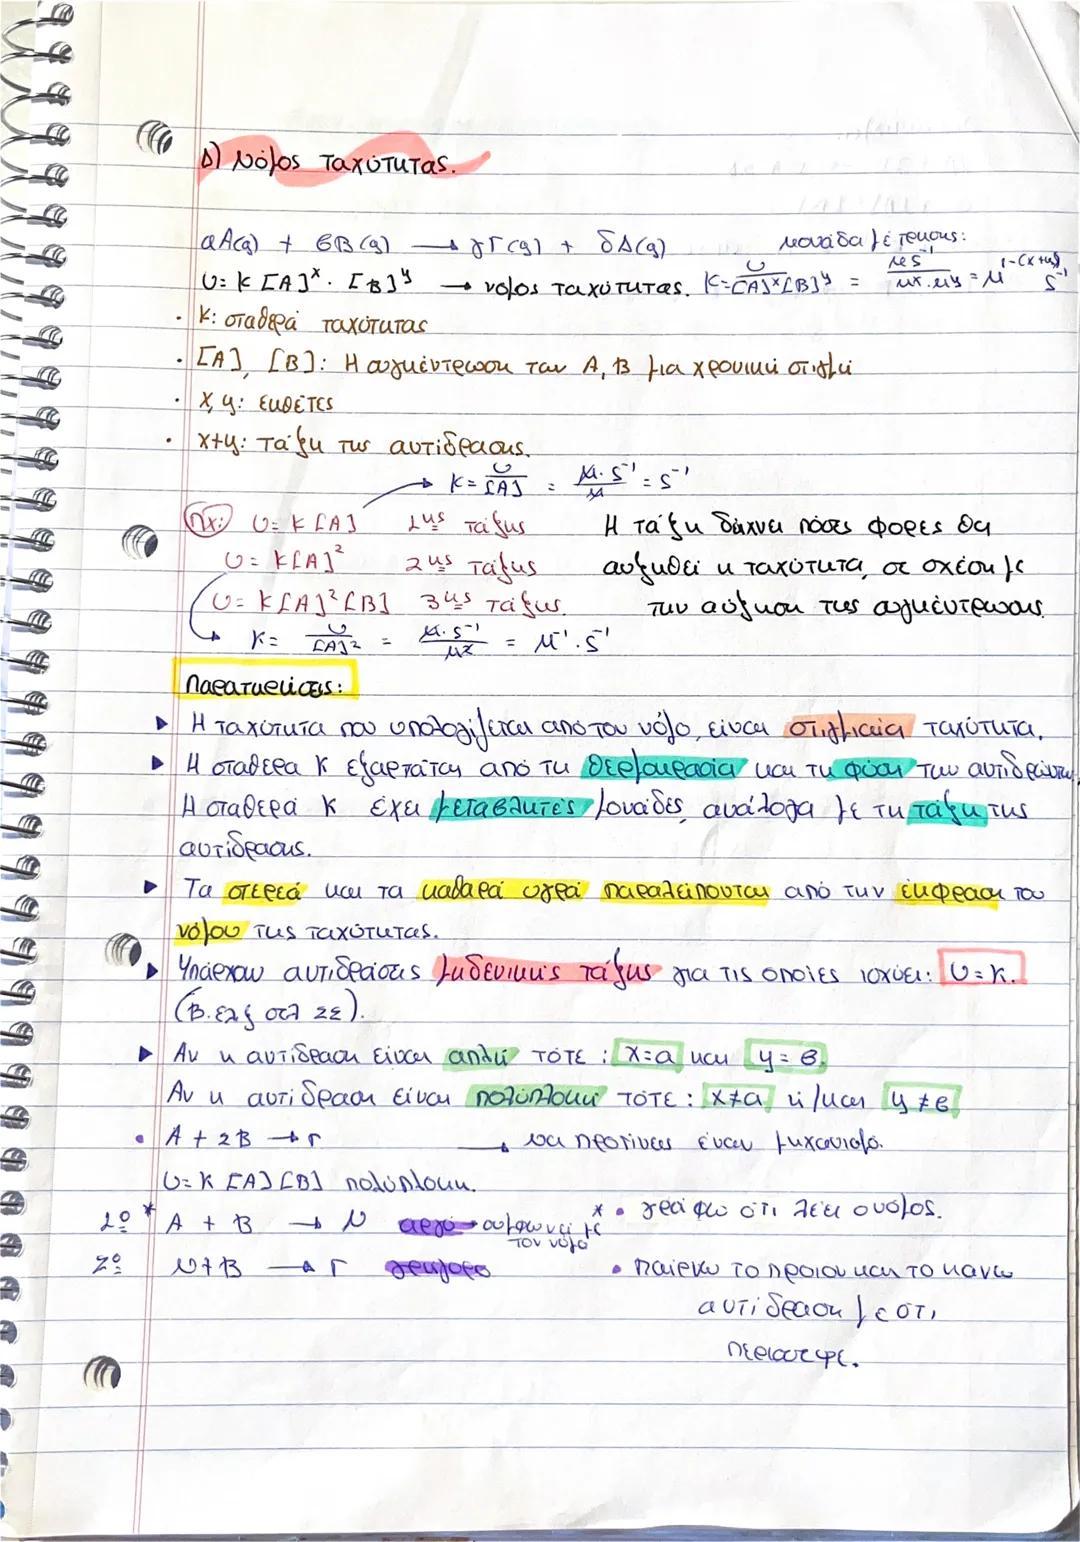 Δ) Νόμος ταχύτητας.
αA(g) + βB(g) → γΓ(g) + δΔ(g) μονάδα μέτρησης:
υ= k [A]ˣ · [B]ʸ → νόμος ταχύτητας. k= υ/[A]ˣ[B]ʸ = M s⁻¹/Mˣ·Mʸ = M¹⁻⁽ˣ⁺ʸ⁾ s⁻¹
· k: σταθερά ταχύτητας
· [A], [B]: Η συγκέντρωση των A, B μια χρονική στιγμή
· x, y: εκθέτες
· x+y: τάξη της αντίδρασης.
→ k= υ/[A] = M·s⁻¹/M = s⁻¹
πχ: υ= k [A] 1ης τάξης Η τάξη δείχνει πόσες φορές θα
υ= k[A]² 2ης τάξης αυξηθεί η ταχύτητα, σε σχέση με
υ= k[A]²[B] 3ης τάξης. την αύξηση της συγκέντρωσης.
→ k= υ/[A]² = M·s⁻¹/M² = M⁻¹·s⁻¹
Παρατηρήσεις:
▶ Η ταχύτητα που υπολογίζεται από τον νόμο, είναι στιγμιαία ταχύτητα.
▶ Η σταθερά k εξαρτάται από τη θερμοκρασία και τη φύση των αντιδρώντων
Η σταθερά k έχει μεταβλητές μονάδες, ανάλογα με τη τάξη της
αντίδρασης.
▶ Τα στερεά και τα καθαρά υγρά παραλείπονται από την έκφραση του
νόμου της ταχύτητας.
▶ Υπάρχουν αντιδράσεις μηδενικής τάξης για τις οποίες ισχύει: υ=k.
(Β.ελξ σελ 25).
▶ Αν η αντίδραση είναι απλή τότε: x=α και y=β.
Αν η αντίδραση είναι πολύπλοκη τότε: x≠α ή/και y≠β
• A + 2B → Γ → να προτίνεις έναν μηχανισμό.
υ= k [A][B] πολύπλοκη.
1º * A + B → N αργό → συμφωνεί με τον νόμο * • γράφω ότι λέει ο νόμος.
2º N+B → Γ γρήγορο • παίρνω το προιον και το κανω
αντίδραση με ότι
περισεψε.